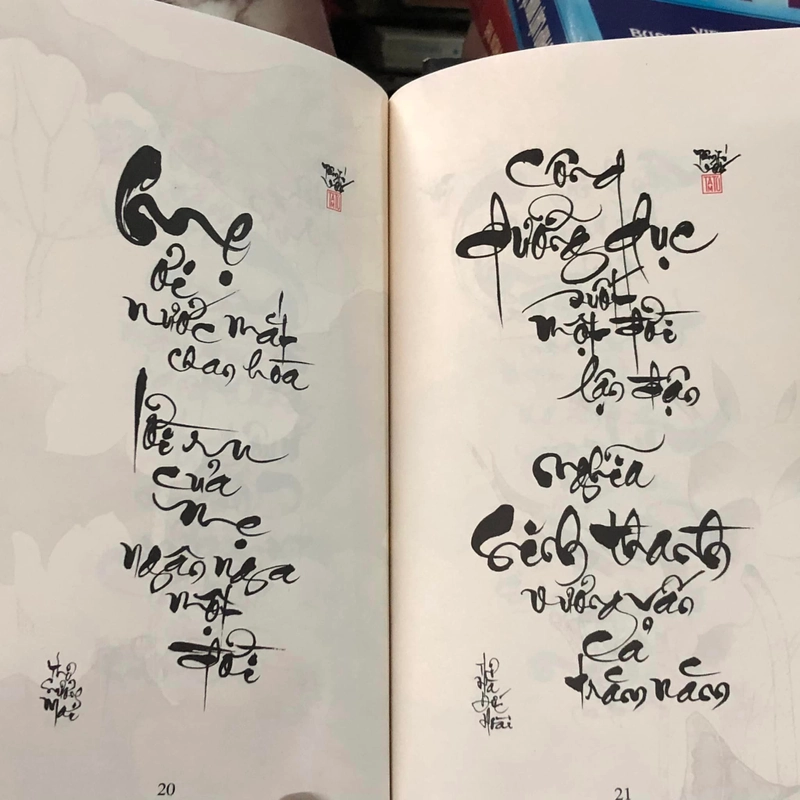 Mẹ
ơi
nước mắt
chan hòa
lời ru
của
mẹ
ngân nga
một
đời
Thơ
Mai
20
Công
dưỡng dục
suốt
một đời
lận đận
nghĩa
sinh thành
vương vấn
cả
trăm năm
Thơ
Hà
Hoài
21
BUS